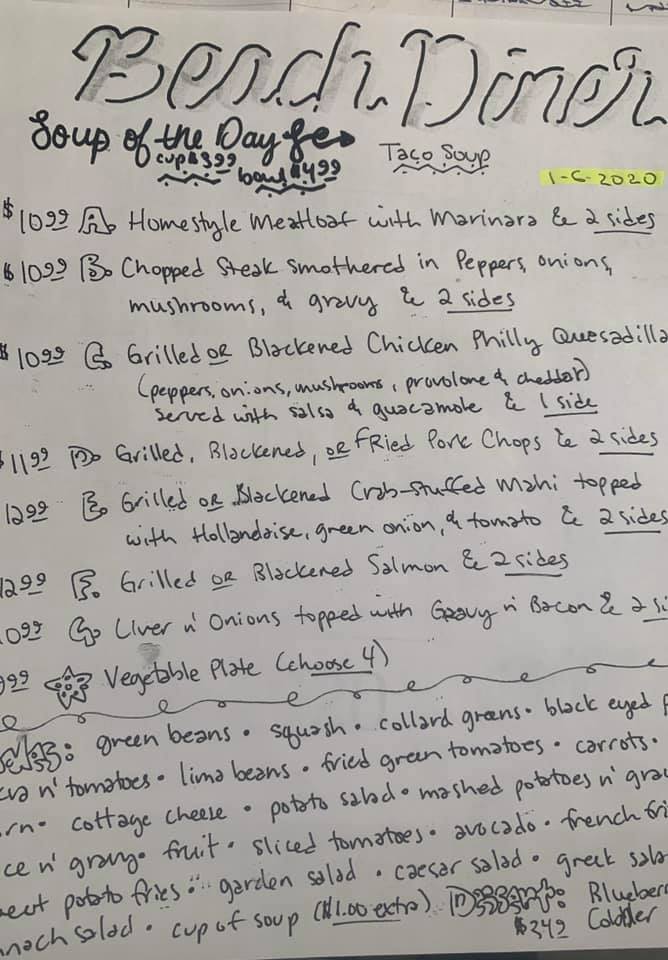 Beach Diner
Soup of the Day
cup $3.99
bowl $4.99
Taco Soup
1-6-2020
$10.99 A. Homestyle Meatloaf with Marinara & 2 sides
$10.99 B. Chopped Steak smothered in Peppers, onions,
mushrooms, & gravy & 2 sides
$10.99 C. Grilled OR Blackened Chicken Philly Quesadilla
(peppers, onions, mushrooms, provolone & cheddar)
served with salsa & guacamole & 1 side
$11.99 D. Grilled, Blackened, OR FRied Pork Chops & 2 sides
12.99 E. Grilled OR Blackened Crab-Stuffed Mahi topped
with Hollandaise, green onion, & tomato & 2 sides
12.99 F. Grilled OR Blackened Salmon & 2 sides
0.99 G. Liver n' Onions topped with Gravy n' Bacon & 2 si
9.99 Vegetable Plate (choose 4)
green beans • squash • collard greens • black eyed p
n' tomatoes • lima beans • fried green tomatoes • carrots •
rn • cottage cheese • potato salad • mashed potatoes n' grav
ce n' gravy • fruit • sliced tomatoes • avocado • french fri
eet potato fries • garden salad • caesar salad • greek sala
nach salad • cup of soup ($1.00 extra) Dessert: Blueber
$3.49 Cobbler